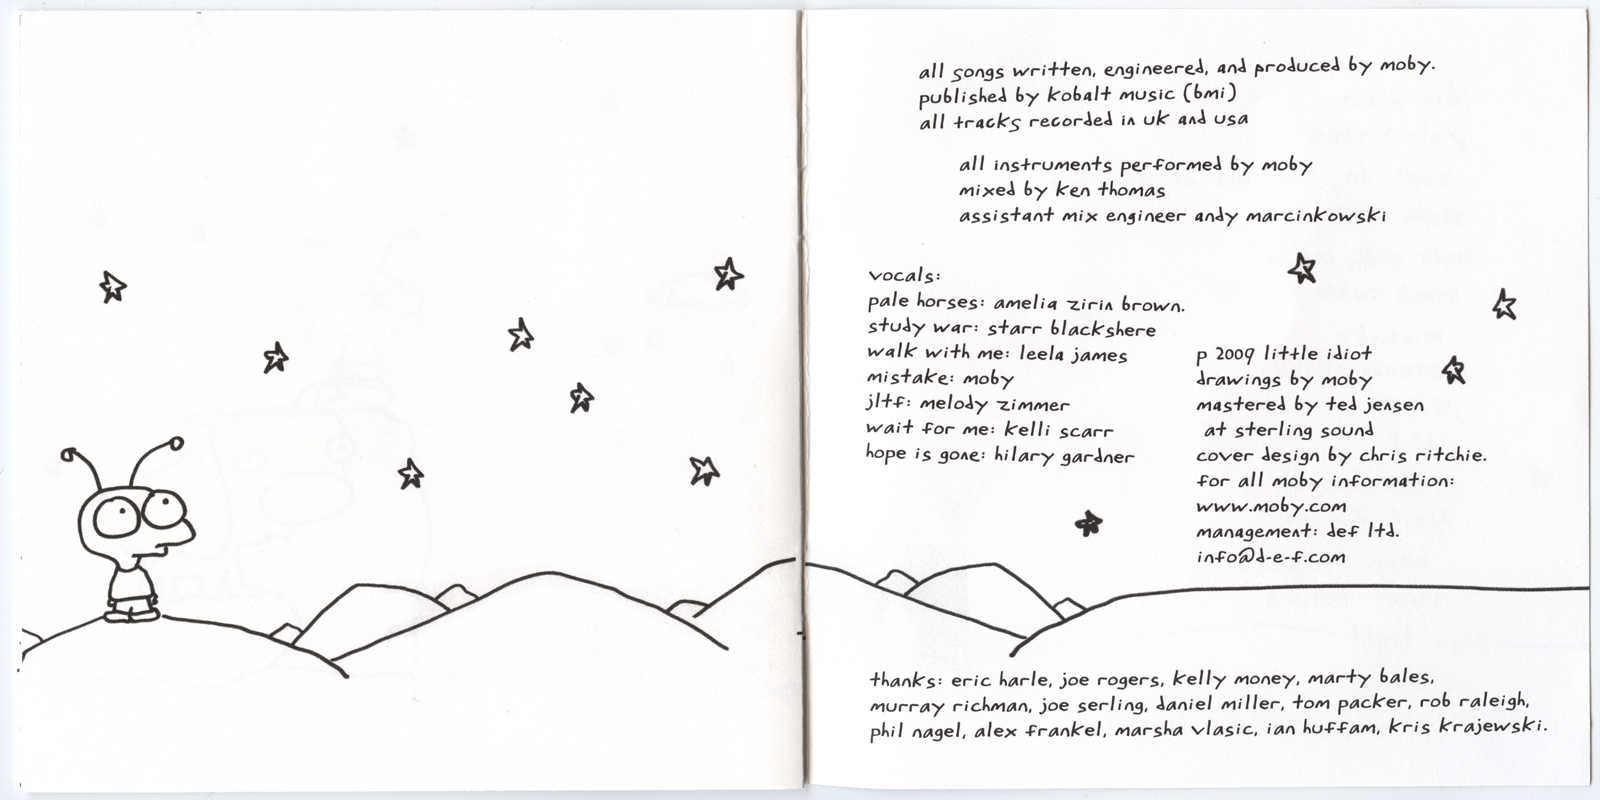 all songs written, engineered, and produced by moby.
published by kobalt music (bmi)
all tracks recorded in uk and usa
all instruments performed by moby
mixed by ken thomas
assistant mix engineer andy marcinkowski
vocals:
pale horses: amelia zirin brown.
study war: starr blackshere
walk with me: leela james
mistake: moby
jltf: melody zimmer
wait for me: kelli scarr
hope is gone: hilary gardner
p 2009 little idiot
drawings by moby
mastered by ted jensen
at sterling sound
cover design by chris ritchie.
for all moby information:
www.moby.com
management: def ltd.
info@d-e-f.com
thanks: eric harle, joe rogers, kelly money, marty bales,
murray richman, joe serling, daniel miller, tom packer, rob raleigh,
phil nagel, alex frankel, marsha vlasic, ian huffam, kris krajewski.